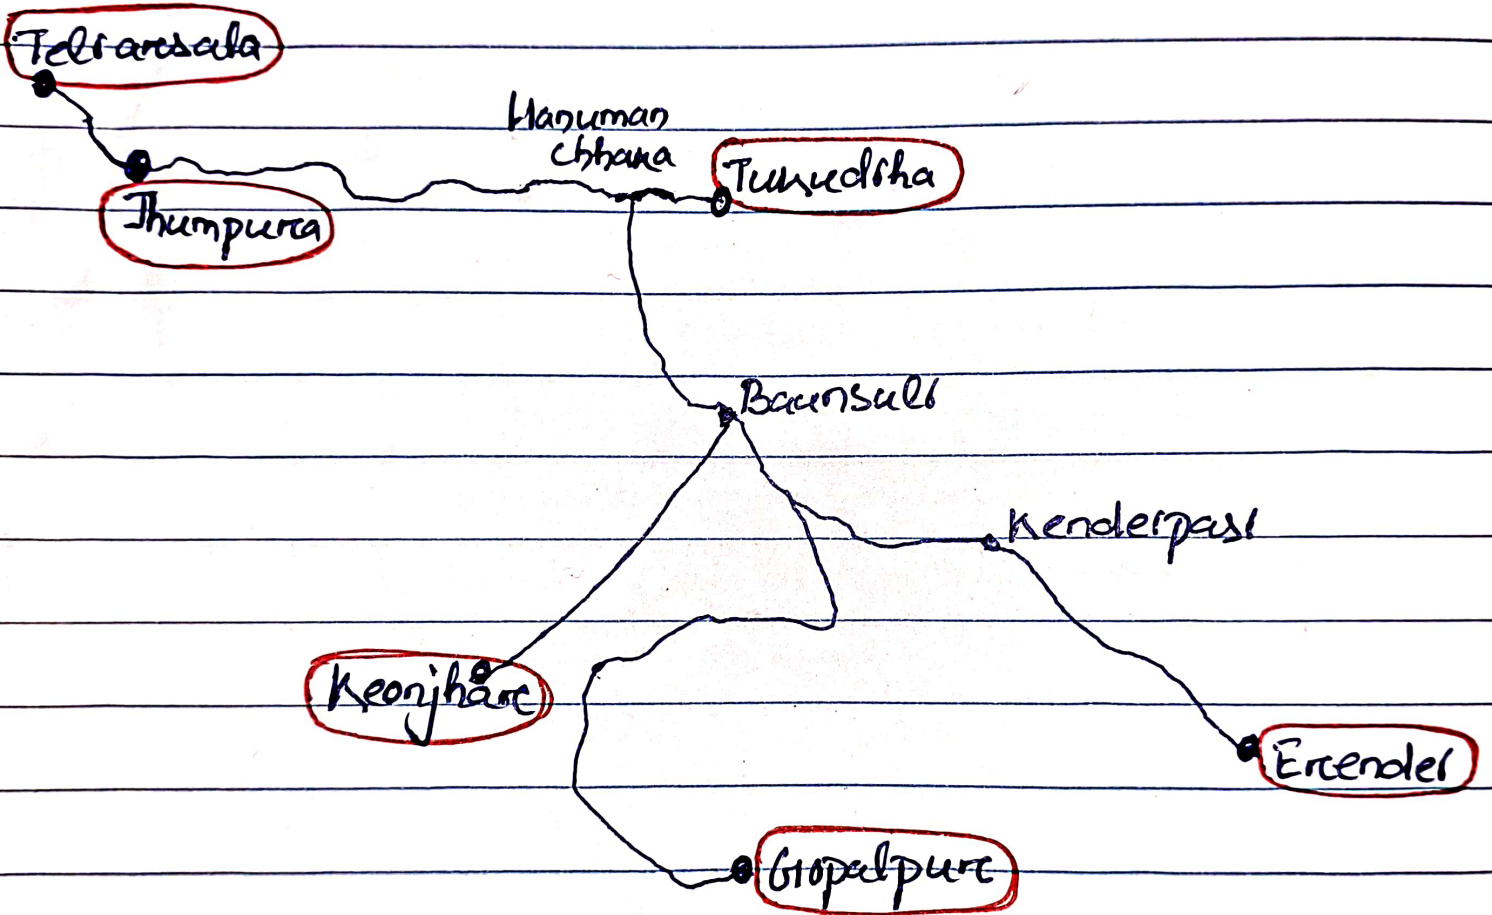 Telraisala
Hanuman
Chhaka
Tukudiha
Jhumpura
Baunsuli
Kenderpasi
Keonjhar
Erendei
Gopalpur